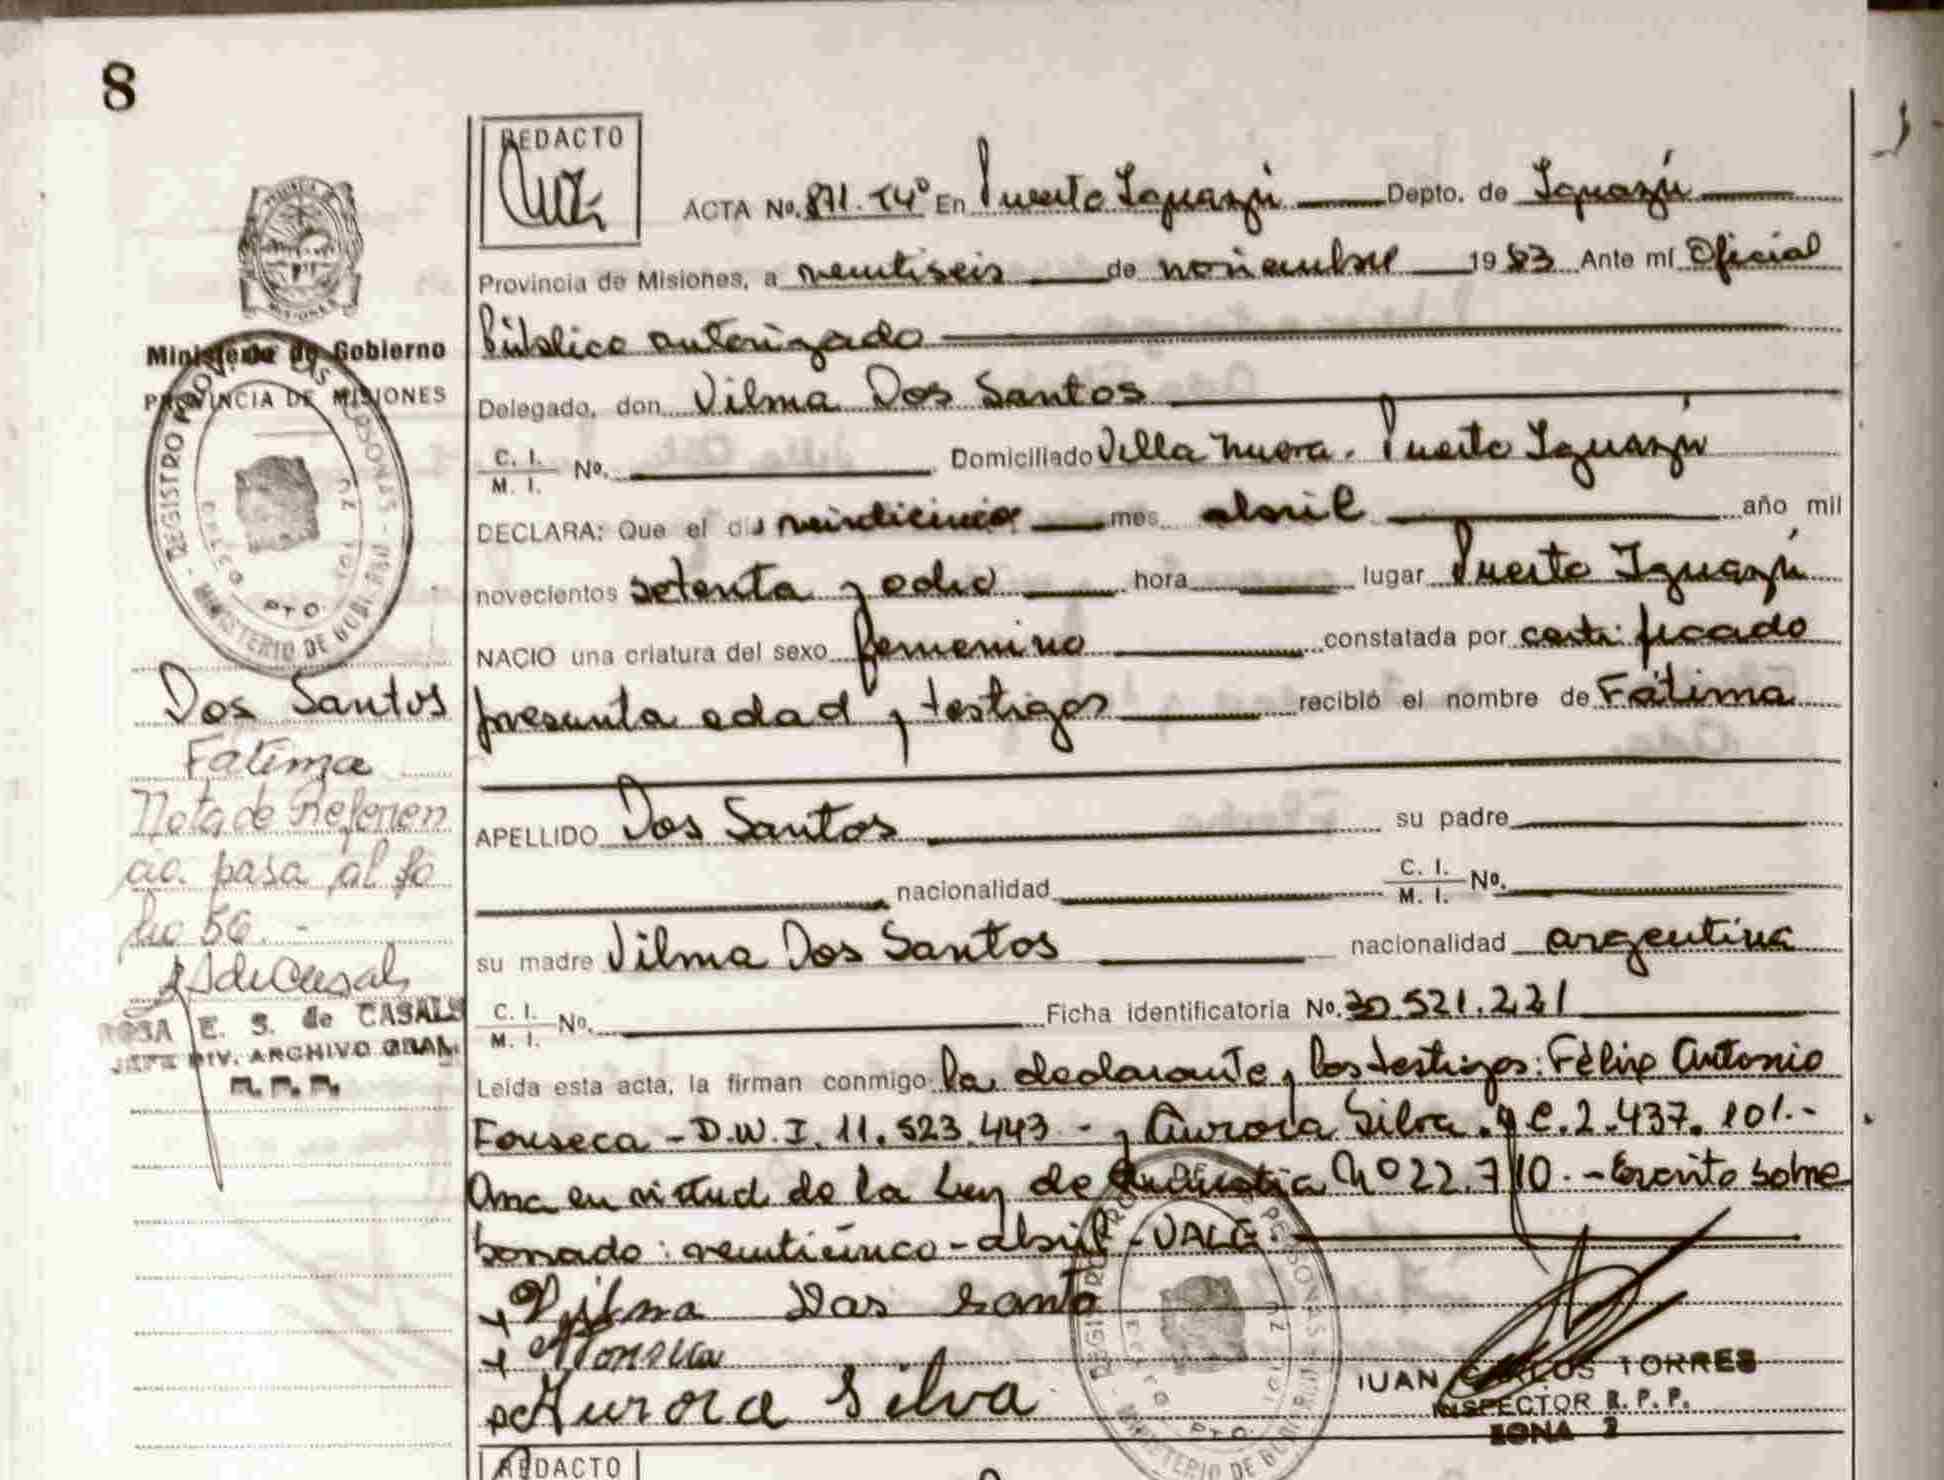 8
REDACTO
ACTA No. 871. T4º En Puerto Iguazú Depto. de Iguazú
Provincia de Misiones, a veintiseis de noviembre 1983 Ante mí Oficial
Público autorizado
Delegado, don Vilma Dos Santos
C. I. M. I. No. Domiciliado Villa Nueva. Puerto Iguazú
DECLARA: Que el día veinticinco mes abril año mil
novecientos setenta y ocho hora lugar Puerto Iguazú
NACIO una criatura del sexo femenino constatada por certificado
presunta edad y testigos recibió el nombre de Fátima
APELLIDO Dos Santos su padre
nacionalidad C. I. M. I. No.
su madre Vilma Dos Santos nacionalidad argentina
C. I. M. I. No. Ficha identificatoria No. 30.521.221
Leída esta acta, la firman conmigo la declarante y los testigos: Félix Antonio
Fonseca - D.N.I. 11.523.443 - y Aurora Silva. C. 2.437.101.-
en virtud de la Ley de Amnistia Nº 22.710.- Escrito sobre
borrado: veinticinco - abril - VALG.
x Vilma Das Santo
x AFonseca
x Aurora Silva
JUAN CARLOS TORRES
INSPECTOR R. P. P.
ZONA 2
Ministerio de Gobierno
PROVINCIA DE MISIONES
REGISTRO PROV. DE LAS PERSONAS - MINISTERIO DE GOB.
Dos Santos
Fatima
Nota de Referen
cia. pasa al fo
lio 56.-
ROSA E. S. de CASALS
JEFE DIV. ARCHIVO GRAL.
R. P. P.
REDACTO